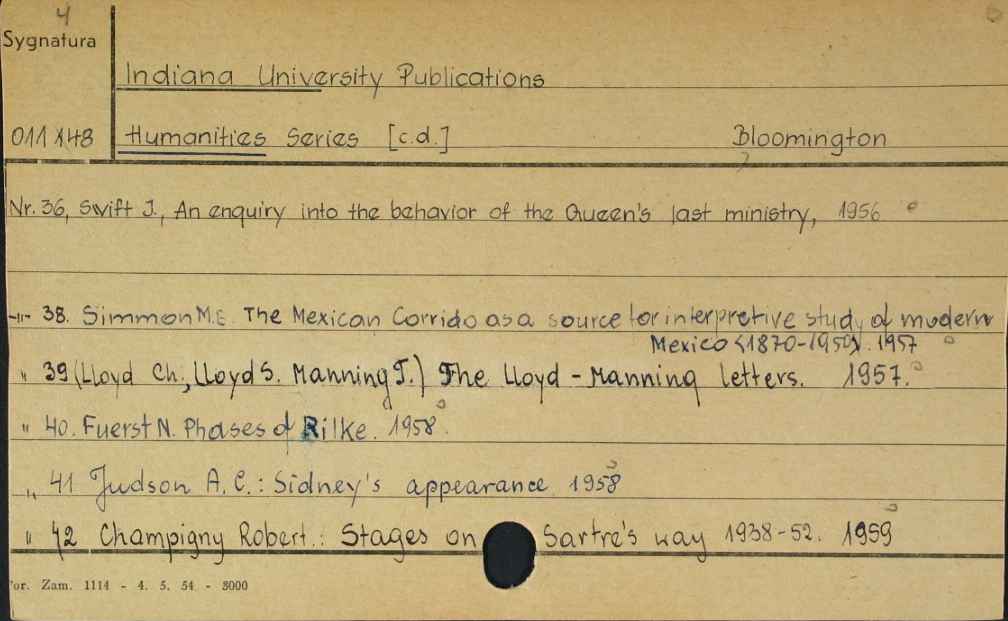 4
Sygnatura
Indiana University Publications
011148 Humanities Series [c.d.] Bloomington
Nr. 36, Swift J., An enquiry into the behavior of the Queen's last ministry, 1956
-"- 38. Simmon M.E. The Mexican Corrido as a source for interpretive study of modern
Mexico <1870-1950>. 1957
" 39 (Lloyd Ch., Lloyd S. Manning J.) The Lloyd - Manning letters. 1957.
" 40. Fuerst N. Phases of Rilke. 1958.
" 41 Judson A. C.: Sidney's appearance 1958
" 42 Champigny Robert.: Stages on Sartre's way 1938-52. 1959
or. Zam. 1114 - 4. 5. 54 - 3000